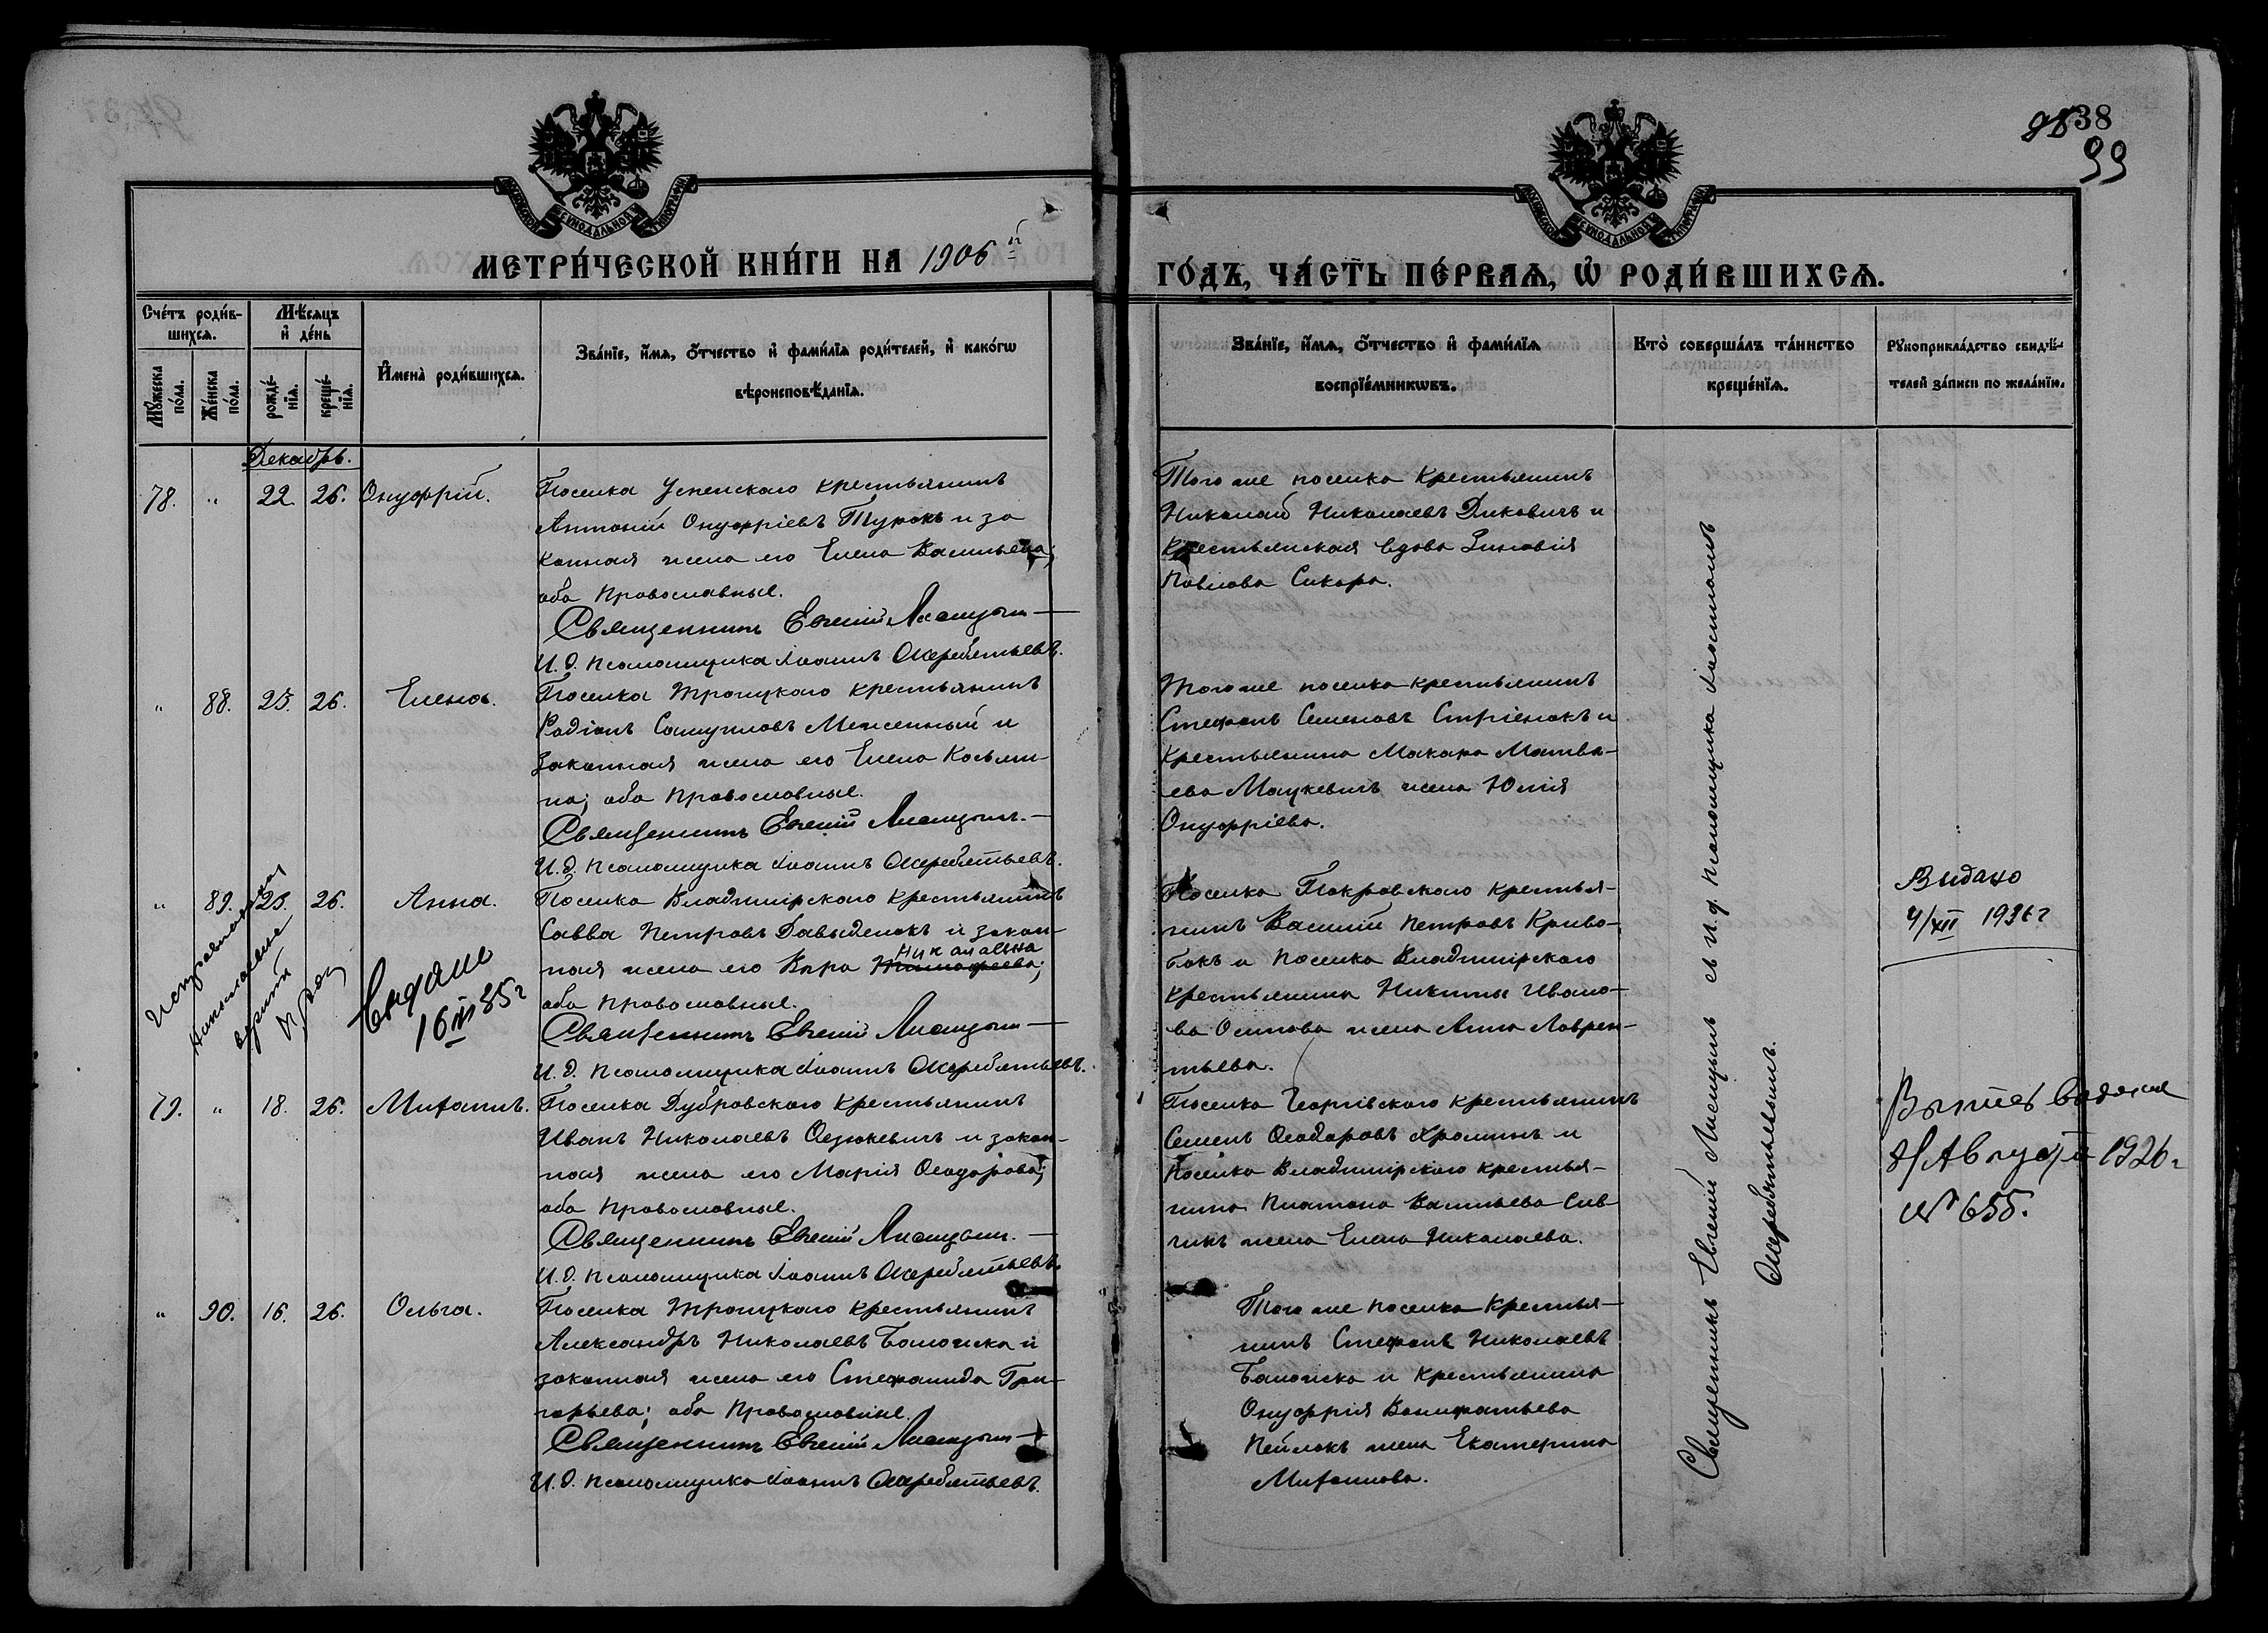 98 38
99
МЕТРИ́ЧЕСКОЙ КНИ́ГИ НА 1906й
ГО́ДЪ, ЧА́СТЬ ПЕ́РВАѦ, Ѡ РОДИ́ВШИХСѦ.
Сче́тъ роди́в-
шихсѧ.
Мꙋ́жеска по́ла.
Же́нска по́ла.
Мѣ́сѧцъ
и де́нь
рожде́-
нїѧ.
креще́-
нїѧ.
И҆мена̀ роди́вшихсѧ.
Зва́нїе, и҆́мѧ, ѻ҆́тчество и҆ фами́лїѧ роди́телей, и҆ како́гѡ
вѣроисповѣ́данїѧ.
Зва́нїе, и҆́мѧ, ѻ҆́тчество и҆ фами́лїѧ
воспрїе́мникѡвъ.
Кто̀ соверша́лъ та́инство
креще́нїѧ.
Рꙋкоприкла́дство свидѣ́-
телей за́писи по жела́нїю.
Декабрь.
78. " 22. 26. Онуфрій.
Поселка Успенскаго крестьянинъ
Антоній Онуфріевъ Турокъ и за
конная жена его Елена Васильева;
оба православные.
Священникъ Евгеній Лисицынъ
И. д. псаломщика Іоаннъ Ожеребятьевъ.
Того же поселка крестьянинъ
Николай Николаевъ Дикевичъ и
крестьянская вдова Зиновія
Павлова Сикора.
" 88. 25. 26. Елена.
Поселка Троицкаго крестьянинъ
Радіонъ Самуиловъ Меженный и
законная жена его Елена Косьми-
на; оба православные.
Священникъ Евгеній Лисицынъ.
И. д. псаломщика Іоаннъ Ожеребятьевъ.
Того же поселка крестьянинъ
Стефанъ Семеновъ Стріенокъ и
крестьянина Макара Матвѣ-
ева Мацкевичъ жена Юлія
Онуфріева.
" 89. 25. 26. Анна.
Поселка Владимірскаго крестьянинъ
Савва Петровъ Давыденокъ и закон-
ная жена его Вѣра Тимофеева; Николаевна
оба православные.
Священникъ Евгеній Лисицынъ
И. д. псаломщика Іоаннъ Ожеребятьевъ.
Выдано
16 III 35 г
Поселка Покровскаго крестья-
нинъ Василій Петровъ Криво-
бокъ и поселка Владимірскаго
крестьянина Никиты Ивано-
ва Осипова жена Анна Лаврен-
тьева.
Видано
4/XII 1936 г
79. " 18. 26. Михаилъ.
Поселка Дубровскаго крестьянинъ
Иванъ Николаевъ Федюкевичъ и закон-
ная жена его Марія Ѳеодорова;
оба православные.
Священникъ Евгеній Лисицынъ.
И. д. псаломщика Іоаннъ Ожеребятьевъ.
Поселка Георгіевскаго крестьянинъ
Семенъ Ѳеодоровъ Хроминъ и
поселка Владимірскаго крестья-
нина Платона Васильева Сив-
чикъ жена Елена Николаева.
Августа 1926 г
№ 655.
" 90. 16. 26. Ольга.
Поселка Троицкаго крестьянинъ
Александръ Николаевъ Балошка и
законная жена его Стефанида Гри-
горьева; оба православные.
Священникъ Евгеній Лисицынъ
И. д. псаломщика Іоаннъ Ожеребятьевъ.
Того же поселка крестья-
нинъ Стефанъ Николаевъ
Балошка и крестьянина
Онуфрія Вонифатьева
жена Екатерина
Михаилова.
Священникъ Евгеній Лисицынъ съ и. д. псаломщика Іоанномъ
Ожеребятьевымъ.